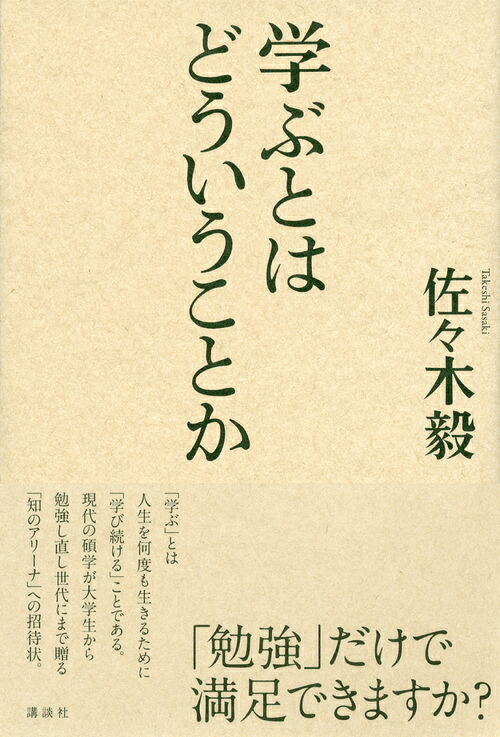 学ぶとは
どういうことか
佐々木毅
Takeshi Sasaki
「学ぶ」とは
人生を何度も生きるために
「学び続ける」ことである。
現代の碩学が大学生から
勉強し直し世代にまで贈る
「知のアリーナ」への招待状。
「勉強」だけで
満足できますか?
講談社